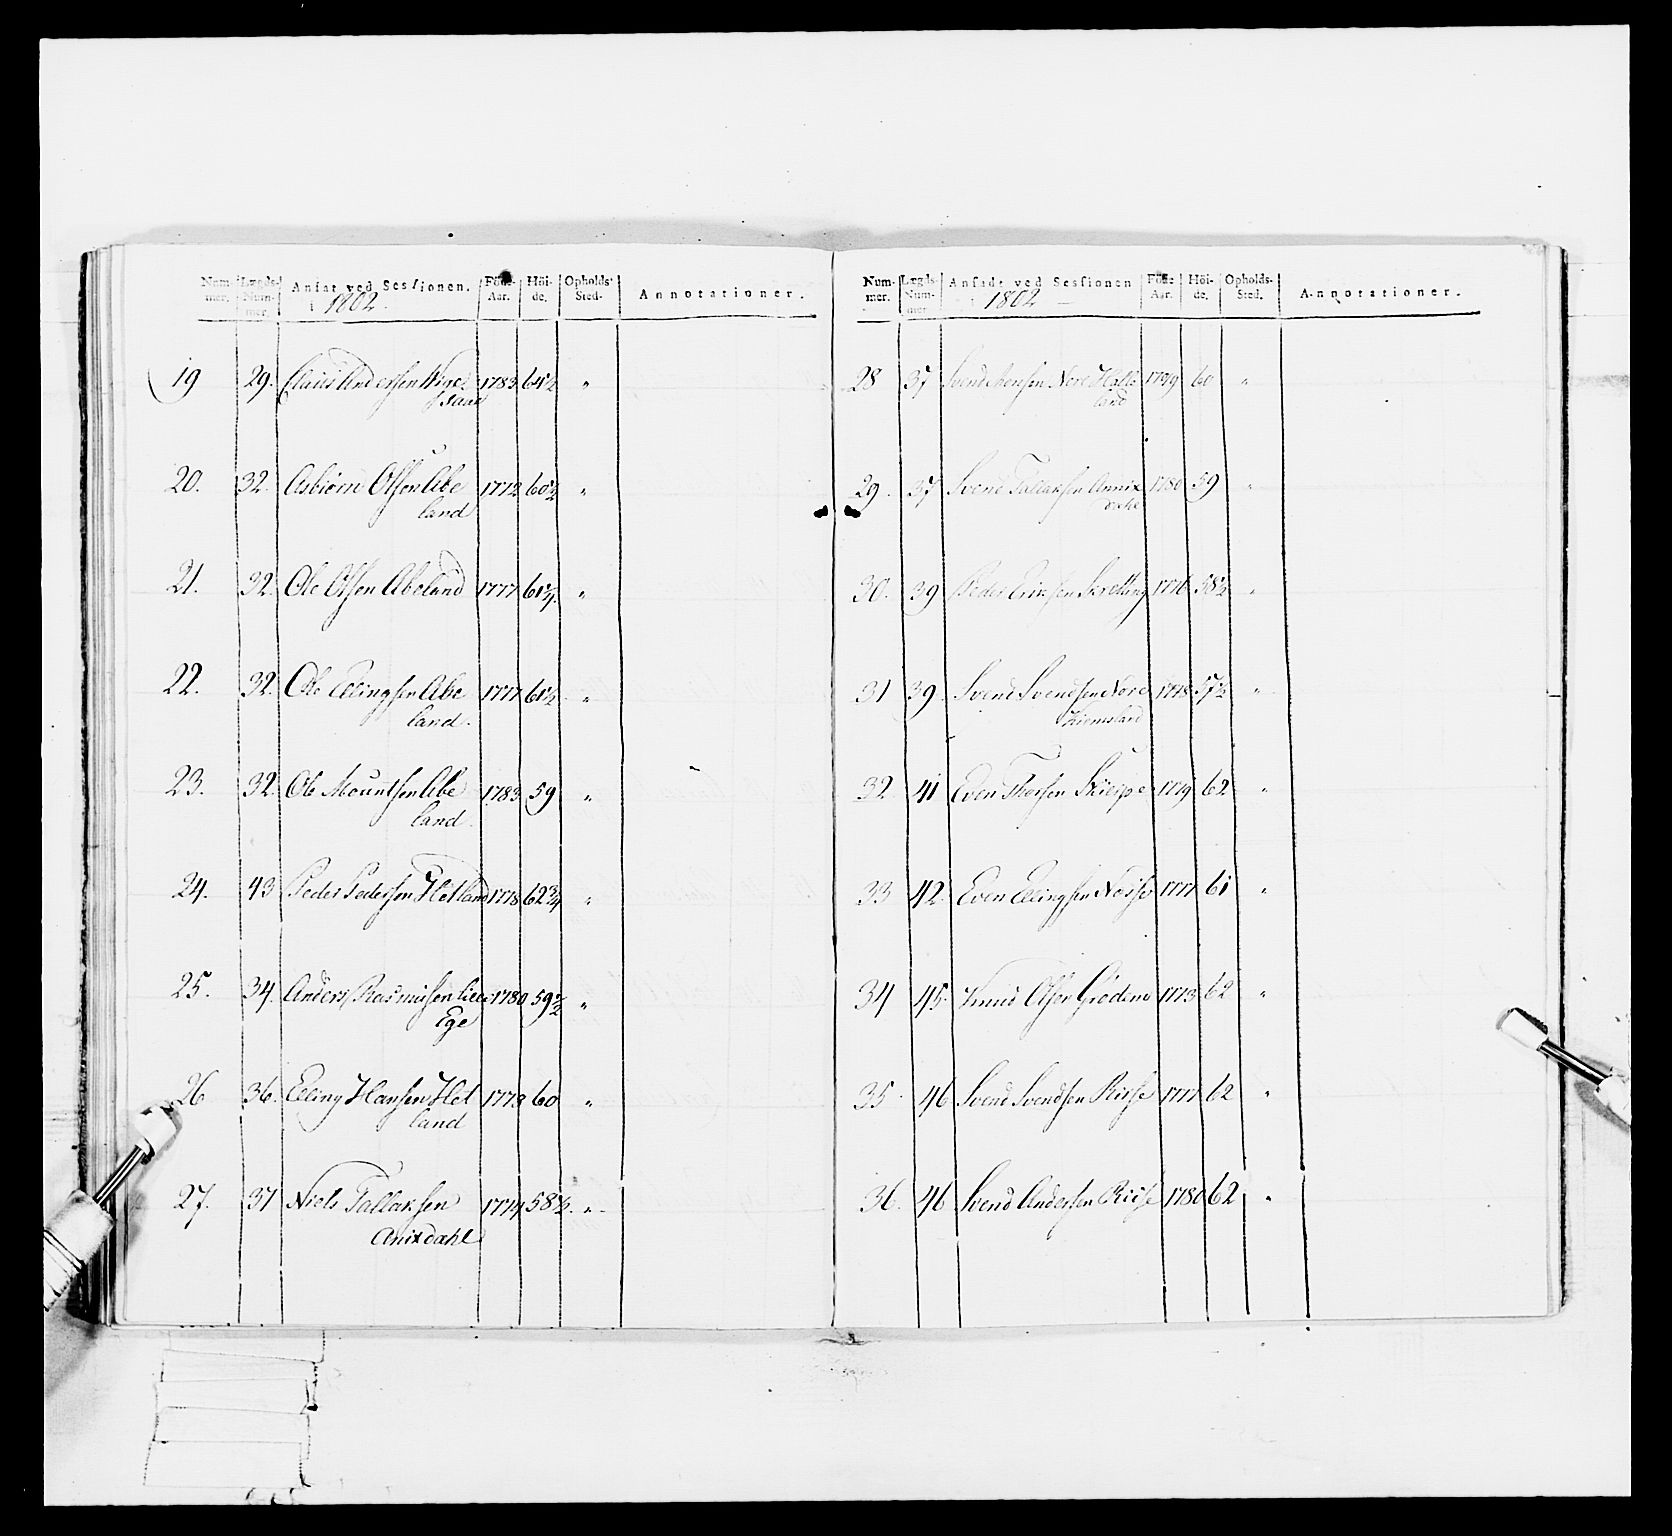 Num-mer. Lægds-Num-mer. Ansat ved Sessionen. i 1802. Föde-Aar. Höi-de. Opholds-Sted. Annotationer.
19 29. Claus Andersen 1783 "
20. 32. Asbiörn Olsen Abe 1772 60½ "
land
21. 32. Ole Olsen Abeland 1777 61¼. "
22. 32. Ole Ellingsen Abe 1777 61½ "
land.
23. 32. Ole Mouritsen Abe 1783 59 "
land.
24. 43 Peder Pedersen Hetland 1778 62¾ "
25. 34. Anders Rasmusen Lille 1780 59½ "
Ege
26 36. Elling Hansen Het 1773 60 "
land
27. 37 Niels Tallaksen 1774 58½. "
Anixdahl
Num-mer. Lægds-Num-mer. Ansadt ved Sessionen i 1802 Föde Aar. Höi-de. Opholds-Sted. Annotationer.
28 37 Svend Monsen Nore 1779 60 "
land
29. 37 Svend Tallaksen Annix 1780 59 "
dahl
30. 39 Peder Eriksen Skretting 1776 58½ "
31 39. Svend Svendsen Nore 1778 57½ "
32 41 Even Thorsen Skieipe 1779 62 "
33 42. Even Ellingsen 1777 61 "
34 45. Knud Olsen Grödem 1773 62 "
35 46 Svend Svendsen Risse 1777 62 "
36. 46 Svend Andersen Riise 1780 62 "